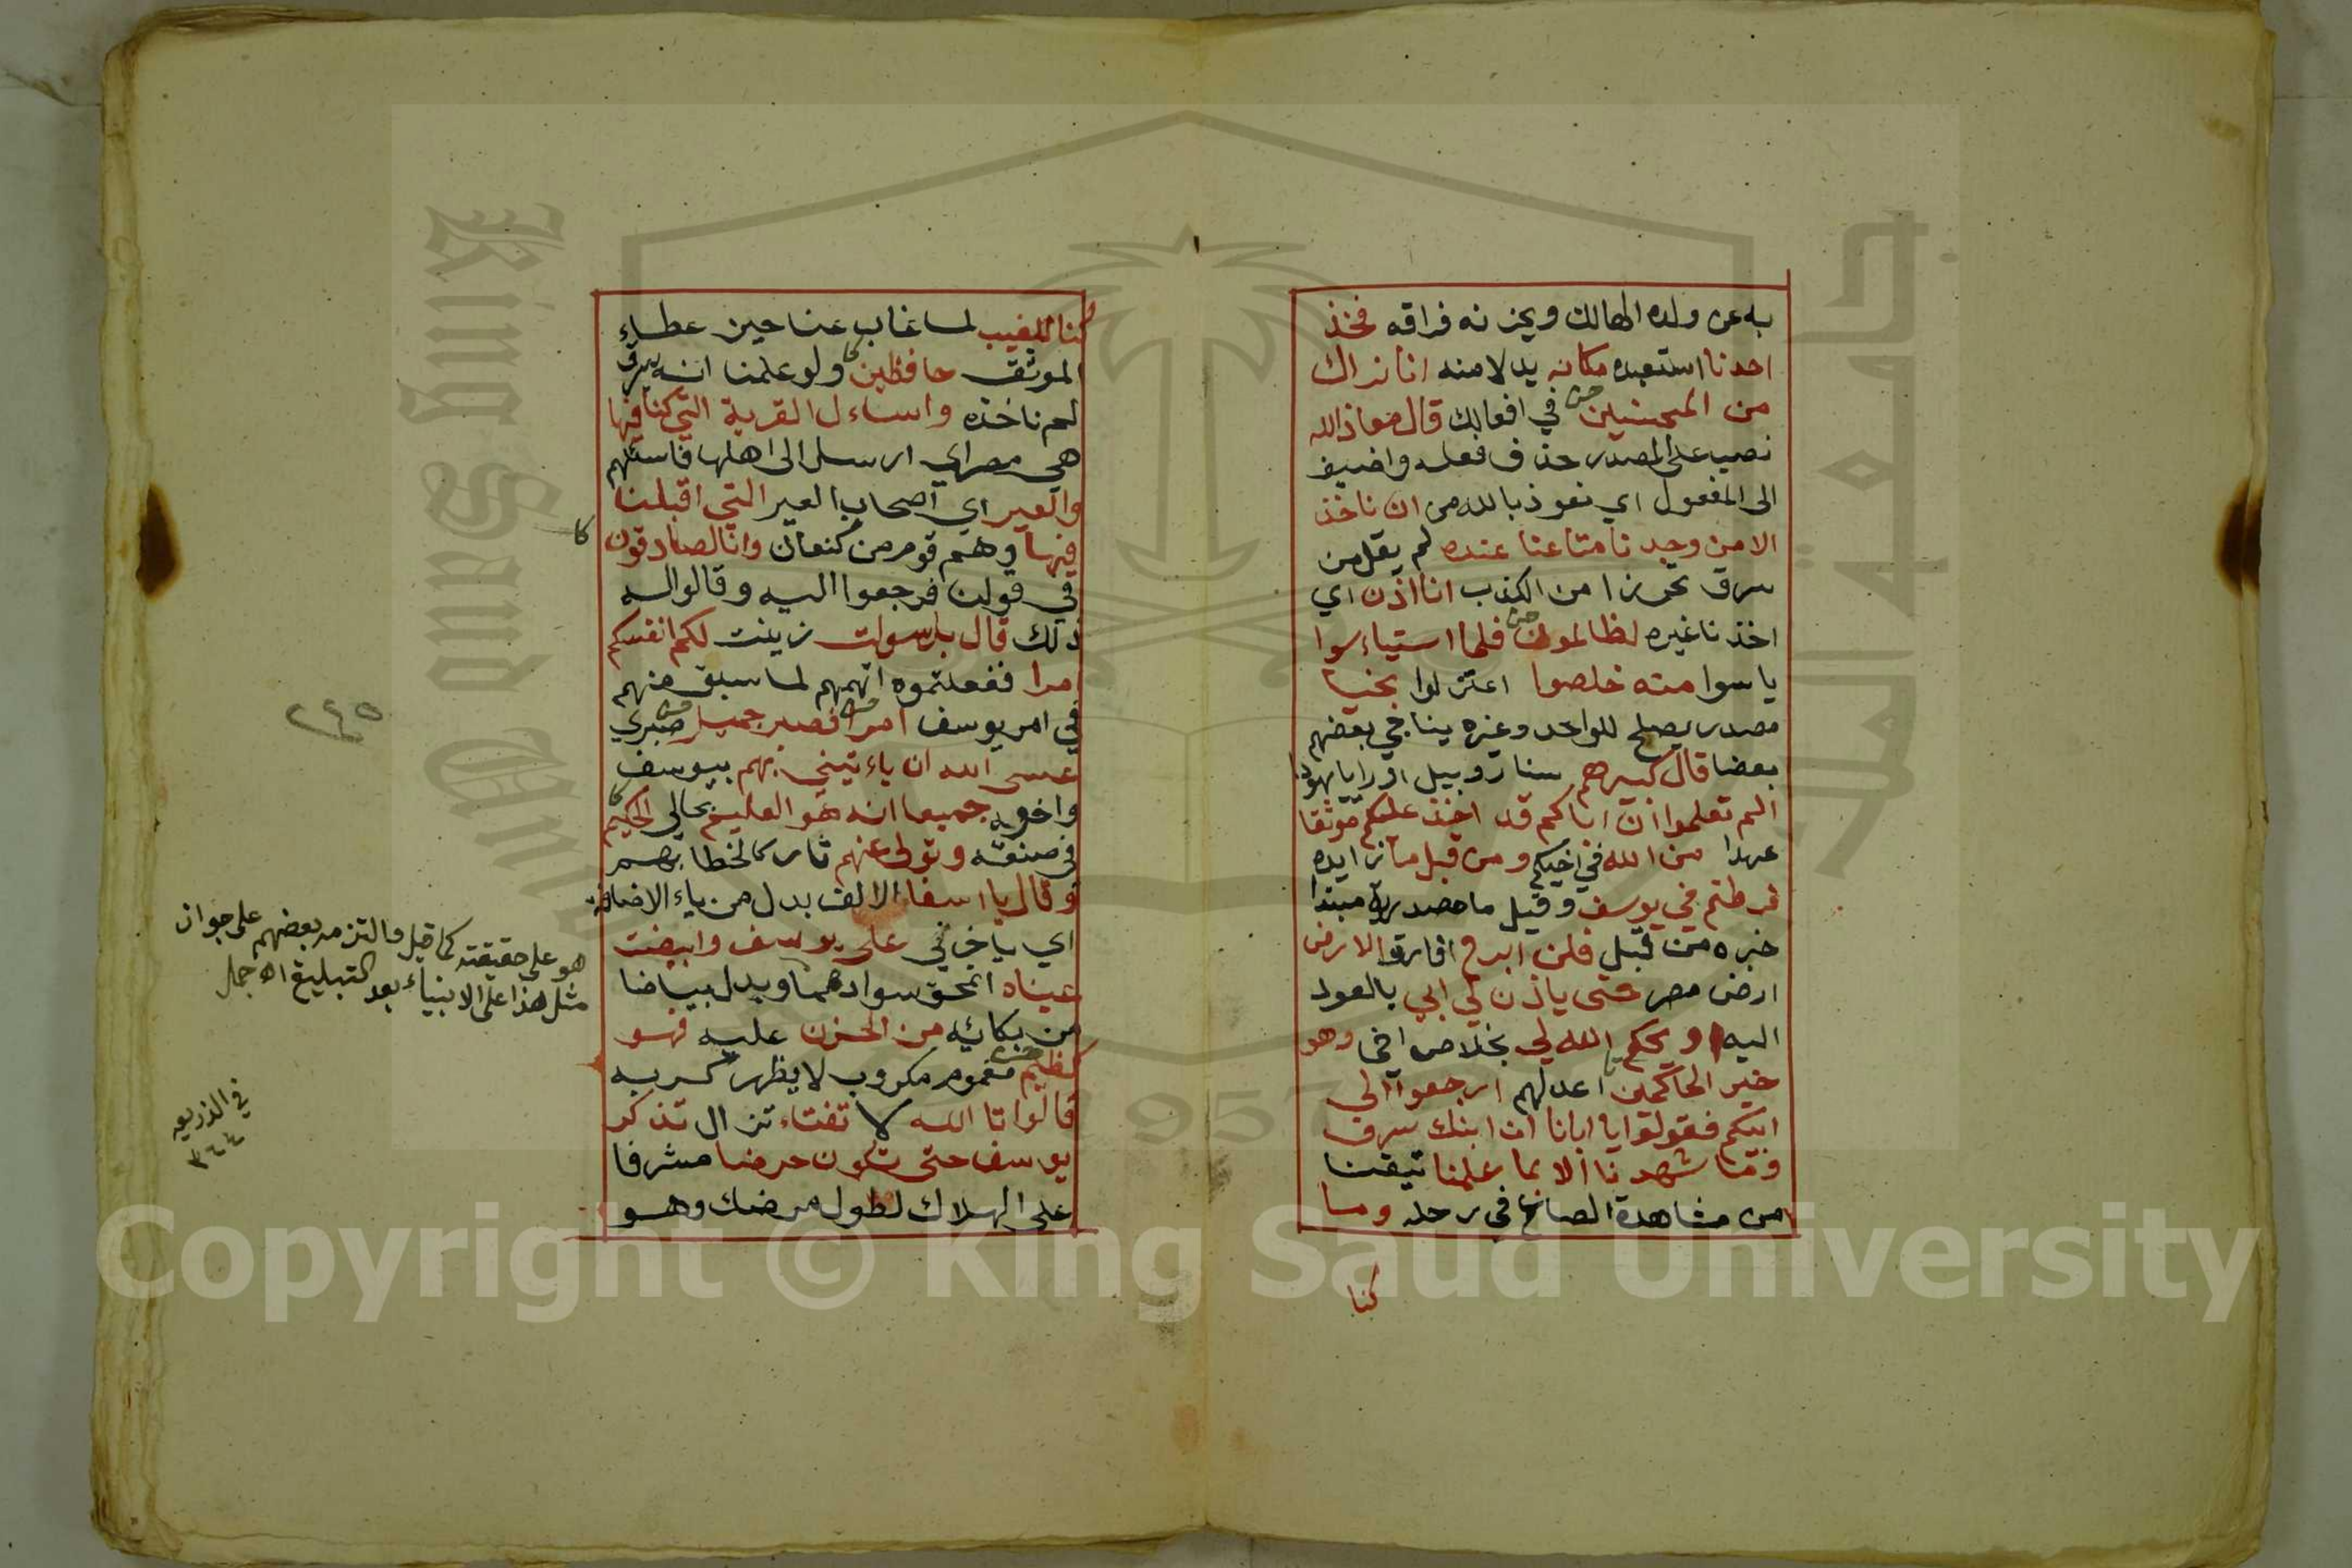 به عن ولده الهالك ويحزنه فراقه فخذ
احدنا استعبده مكانه بدلا منه انا نراك
من المحسنين في افعالك قال معاذ الله
نصب على المصدر حذف فعله واضيف
الى المفعول اي نعوذ بالله من ان ناخذ
الا من وجدنا متاعنا عنده لم يقل من
سرق تحرزا من الكذب انا اذن اي
اخذنا غيره لظالمون فلما استياءسوا
ياسوا منه خلصوا اعتزلوا نجيا
مصدر يصلح للواحد وغيره يناجي بعضهم
بعضا قال كبيرهم سنا روبيل او رايا يهودا
الم تعلموا ان اباكم قد اخذ عليكم موثقا
عهدا من الله في اخيكم ومن قبل ما زايده
فرطتم في يوسف وقيل ما مصدرية مبتدا
خبره من قبل فلن ابرح افارق الارض
ارض مصر حتى ياذن لي ابي بالعود
اليه او يحكم الله لي بخلاص اخي وهو
خير الحاكمين اعدلهم ارجعوا الى
ابيكم فقولوا يا ابانا ان ابنك سرق
وما شهدنا الا بما علمنا تيقنا
من مشاهدة الصاع في رحله وما
كنا
كنا للغيب لما غاب عنا حين عطاء
الموثق حافظين ولو علمنا انه يسرق
لم ناخذه واساءل القرية التي كنا فيها
هي مصر اي ارسل الى اهلها فاسئلهم
والعير اي اصحاب العير التي اقبلنا
فيها وهم قوم من كنعان وانا لصادقون
في قولنا فرجعوا اليه وقالوا له
ذلك قال بل سولت زينت لكم انفسكم
امرا ففعلتموه اتهمهم لما سبق منهم
في امر يوسف امرا فصبر جميل صبري
عسى الله ان ياءتيني بهم بيوسف
واخويه جميعا انه هو العليم بحالي الحكيم
في صنعه وتولى عنهم تاركا لخطابهم
وقال يا اسفا الالف بدل من ياء الاضافة
اي يا حزني على يوسف وابيضت
عيناه انمحق سوادهما وبدل بياضا
من بكائه من الحزن عليه فهو
كظيم مغموم مكروب لا يظهر كربه
قالوا تا الله لا تفتاء تزال تذكر
يوسف حتى تكون حرضا مشرفا
على الهلاك لطول مرضك وهو
٢٤٥
هو على حقيقته كما قيل والتزم بعضهم على جواز
مثل هذا على الانبياء بعد التبليغ اه جمل